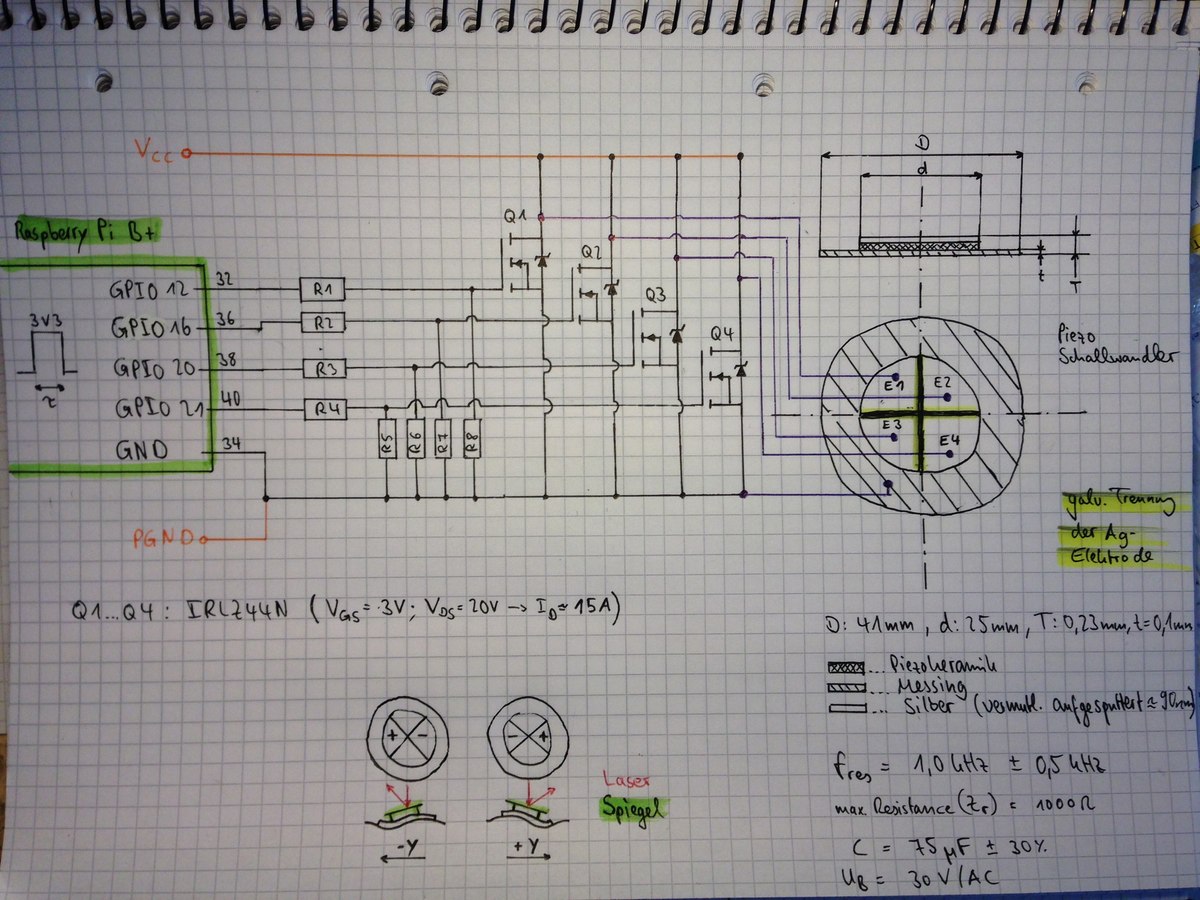 Vcc
D
d
Raspberry Pi B+
Q1
Q2
Q3
Q4
t
T
3V3
τ
GPIO 12 32 R1
GPIO 16 36 R2
GPIO 20 38 R3
GPIO 21 40 R4
GND 34
R5 R6 R7 R8
Piezo
Schallwandler
E1 E2
E3 E4
galv. Trennung
der Ag-
Elektrode
PGND
Q1...Q4: IRLZ44N (VGS = 3V; VDS = 20V → ID ≈ 15A)
D: 41mm, d: 25mm, T: 0,23mm, t=0,1mm
... Piezokeramik
... Messing
... Silber (vermutl. aufgesputtert ≈ 90nm)
+ -
- +
Laser
Spiegel
-Y
+Y
fres = 1,0 kHz ± 0,5 kHz
max. Resistance (Zr) = 1000Ω
C = 75µF ± 30%
UB = 30V/AC